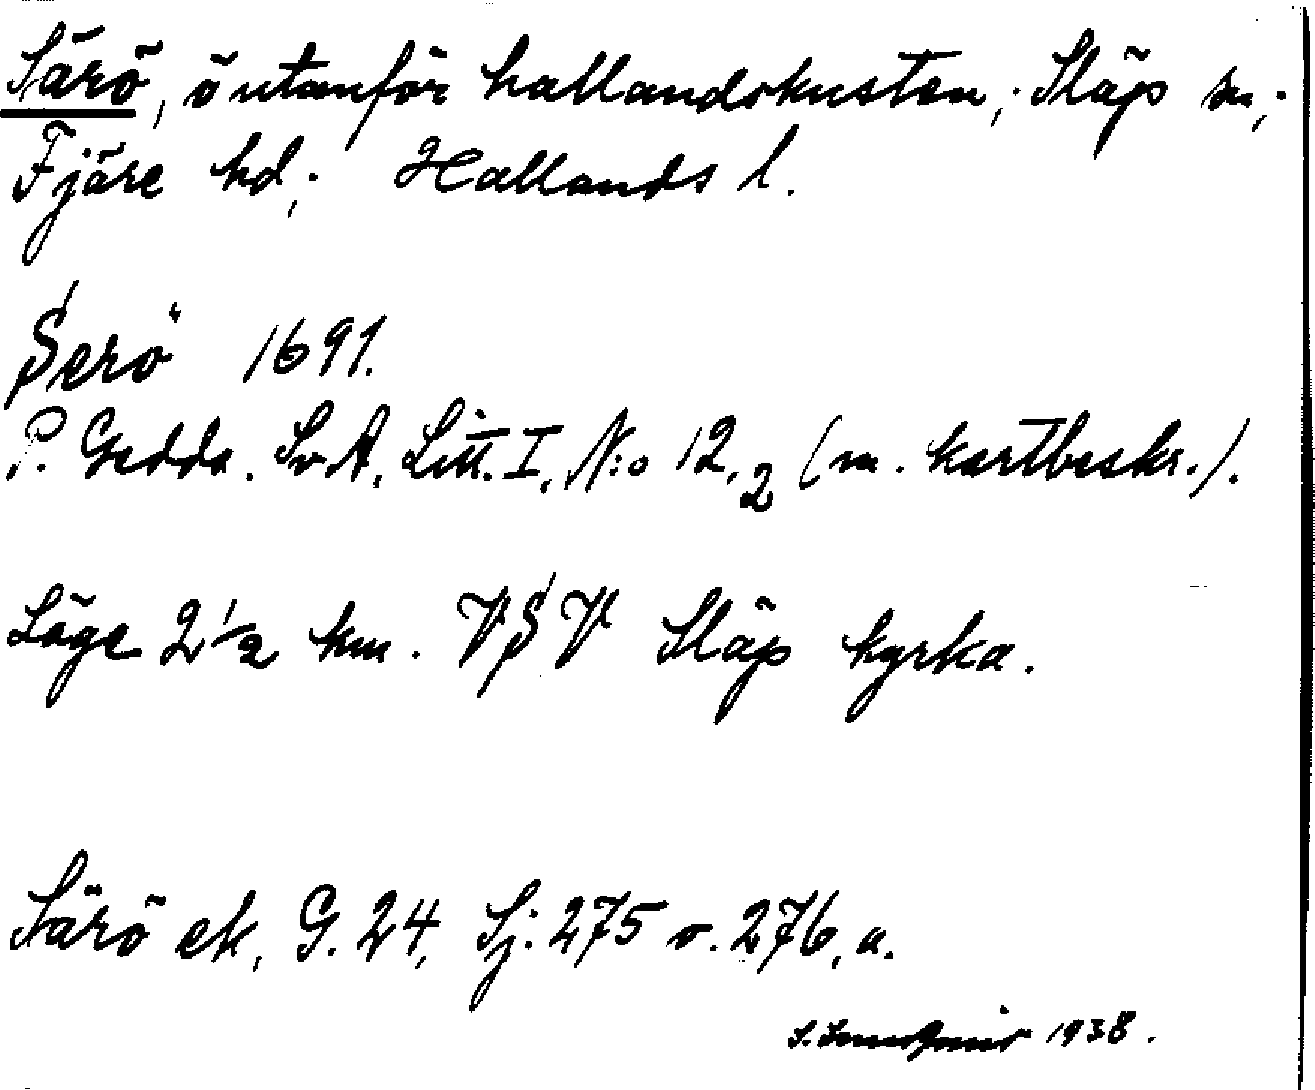 Särö, ö utanför hallandskusten; Släp sn;
Fjäre hd; Hallands l.
Serö 1691.
P. Gedda. Sv.A. Litt. I, N:o 12,2 (m. kartbeskr.).
Läge 2½ km. VSV Släp kyrka.
Särö ek, G. 24, Sj. 275 o. 276, a.
S. 1938.